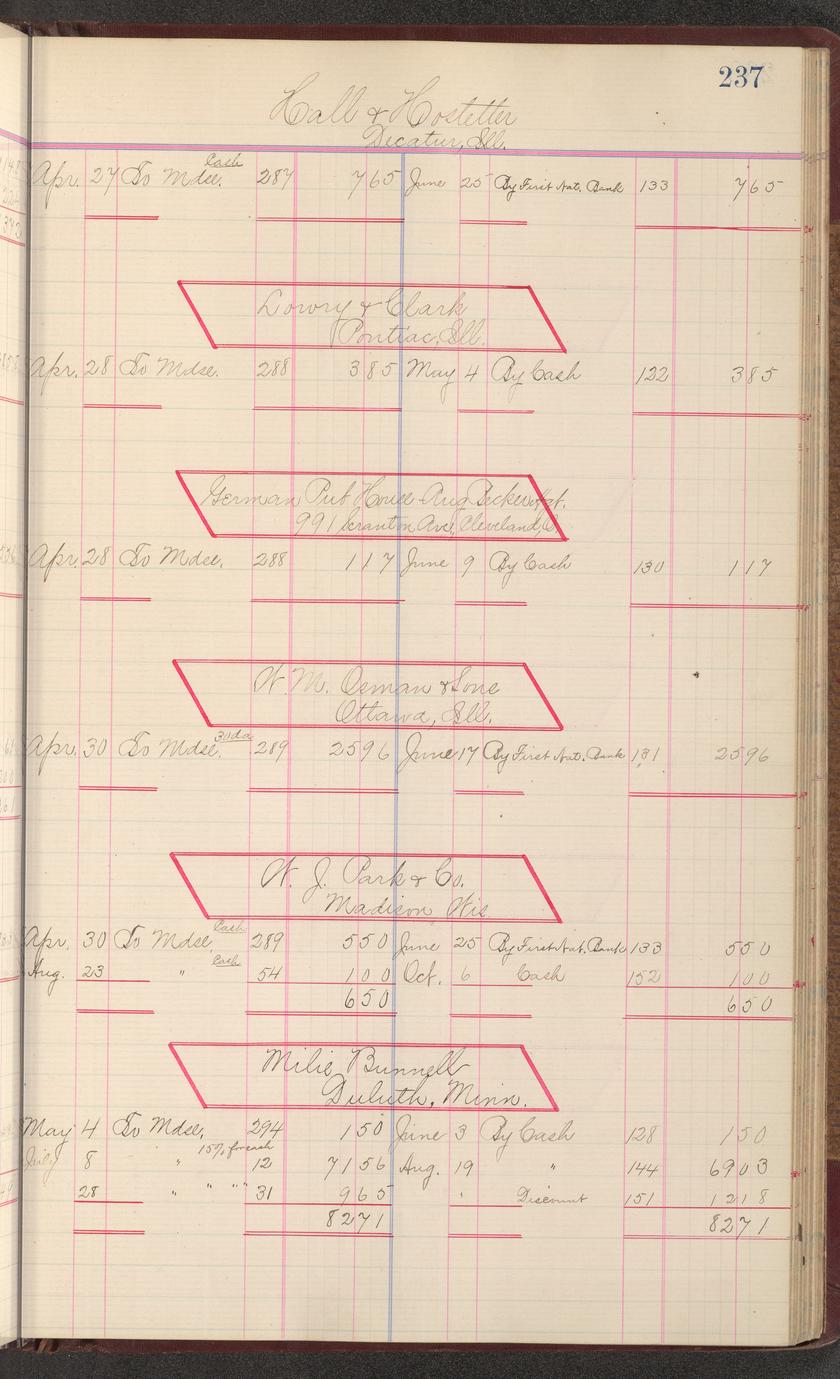 237
Hall & Hostetter
Decatur, Ill.
Apr. 27 To Mdse. Cash 287 765 June 25 By First Nat. Bank 133 765
Lowry & Clark
Pontiac, Ill.
Apr. 28 To Mdse. 288 385 May 4 By Cash 122 385
German Pub House Aug Becker Agt.
991 Scranton Ave, Cleveland, O.
Apr. 28 To Mdse. 288 117 June 9 By Cash 130 117
W. M. Osman & Sons
Ottawa, Ill.
Apr. 30 To Mdse. 30 da 289 2596 June 17 By First Nat. Bank 131 2596
W. J. Park & Co.
Madison Wis
Apr. 30 To Mdse. Cash 289 550 June 25 By First Nat. Bank 133 550
Aug. 23 " Cash 54 100 Oct. 6 Cash 152 100
650 650
Milie Bunnell
Duluth, Minn.
May 4 To Mdse. 294 150 June 3 By Cash 128 150
July 8 " 15% for cash 12 7156 Aug. 19 " 144 6903
28 " " " " 31 965 " Discount 151 1218
8271 8271